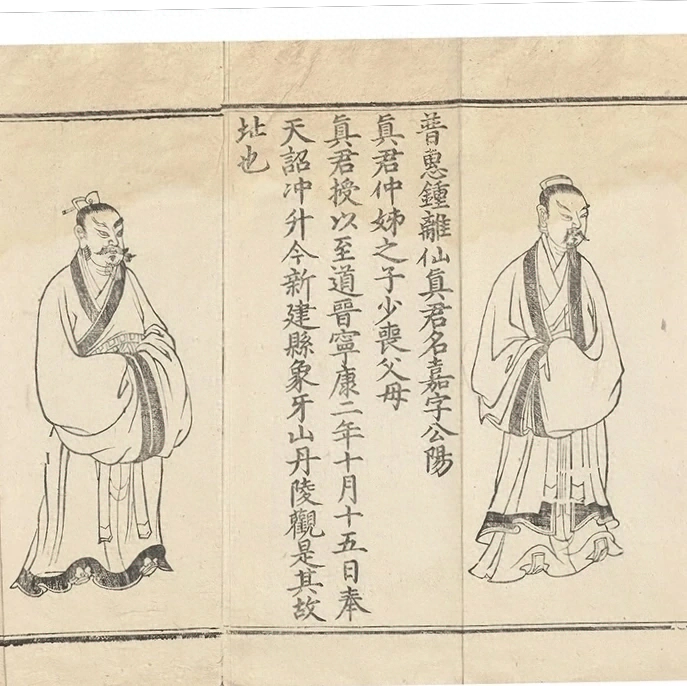 普惠鍾離仙真君名嘉字公陽
真君仲姊之子少喪父母
真君授以至道晉寧康二年十月十五日奉
天詔冲升今新建縣象牙山丹陵觀是其故
址也